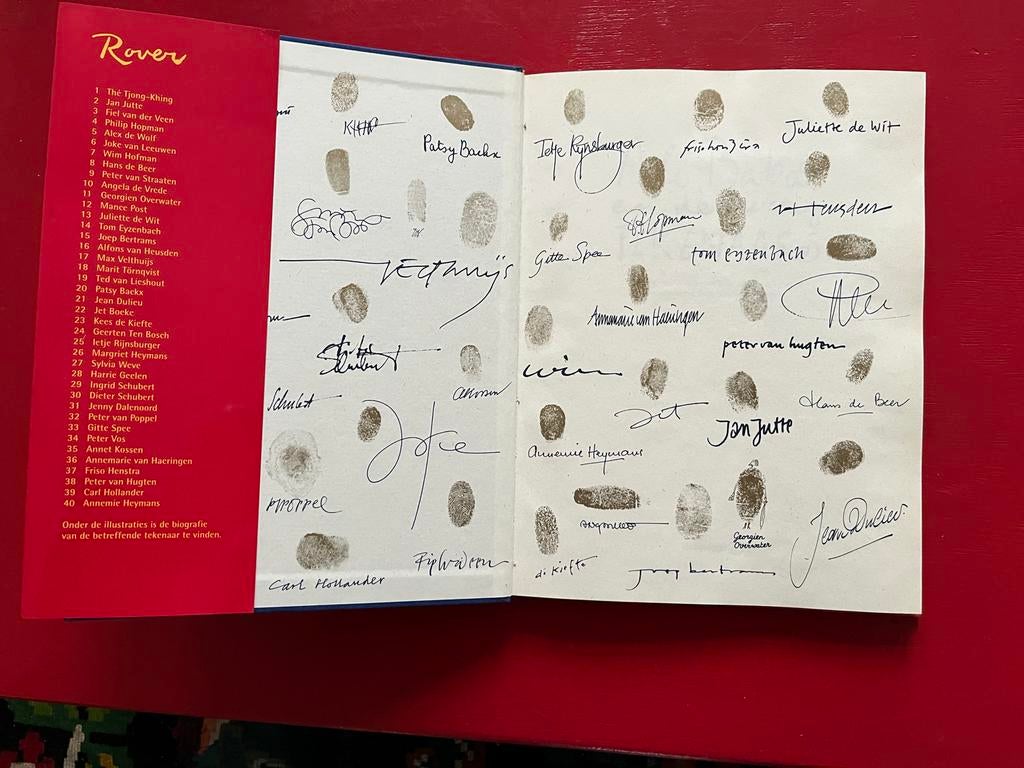 Rover
1 Thé Tjong-Khing
2 Jan Jutte
3 Fiel van der Veen
4 Philip Hopman
5 Alex de Wolf
6 Joke van Leeuwen
7 Wim Hofman
8 Hans de Beer
9 Peter van Straaten
10 Angela de Vrede
11 Georgien Overwater
12 Mance Post
13 Juliette de Wit
14 Tom Eyzenbach
15 Joep Bertrams
16 Alfons van Heusden
17 Max Velthuijs
18 Marit Törnqvist
19 Ted van Lieshout
20 Patsy Backx
21 Jean Dulieu
22 Jet Boeke
23 Kees de Kiefte
24 Geerten Ten Bosch
25 Ietje Rijnsburger
26 Margriet Heymans
27 Sylvia Weve
28 Harrie Geelen
29 Ingrid Schubert
30 Dieter Schubert
31 Jenny Dalenoord
32 Peter van Poppel
33 Gitte Spee
34 Peter Vos
35 Annet Kossen
36 Annemarie van Haeringen
37 Friso Henstra
38 Peter van Hugten
39 Carl Hollander
40 Annemie Heymans
Onder de illustraties is de biografie
van de betreffende tekenaar te vinden.
Patsy Backx
Velthuijs
Schubert
Schubert
Joke
Carl Hollander
Ietje Rijnsburger
Juliette de Wit
Heusden
Gitte Spee
tom eyzenbach
Annemarie van Haeringen
peter van hugten
wim
Jet
Hans de Beer
Jan Jutte
Annemie Heymans
Georgien
Overwater
Jean Dulieu
de Kiefte
joep bertrams